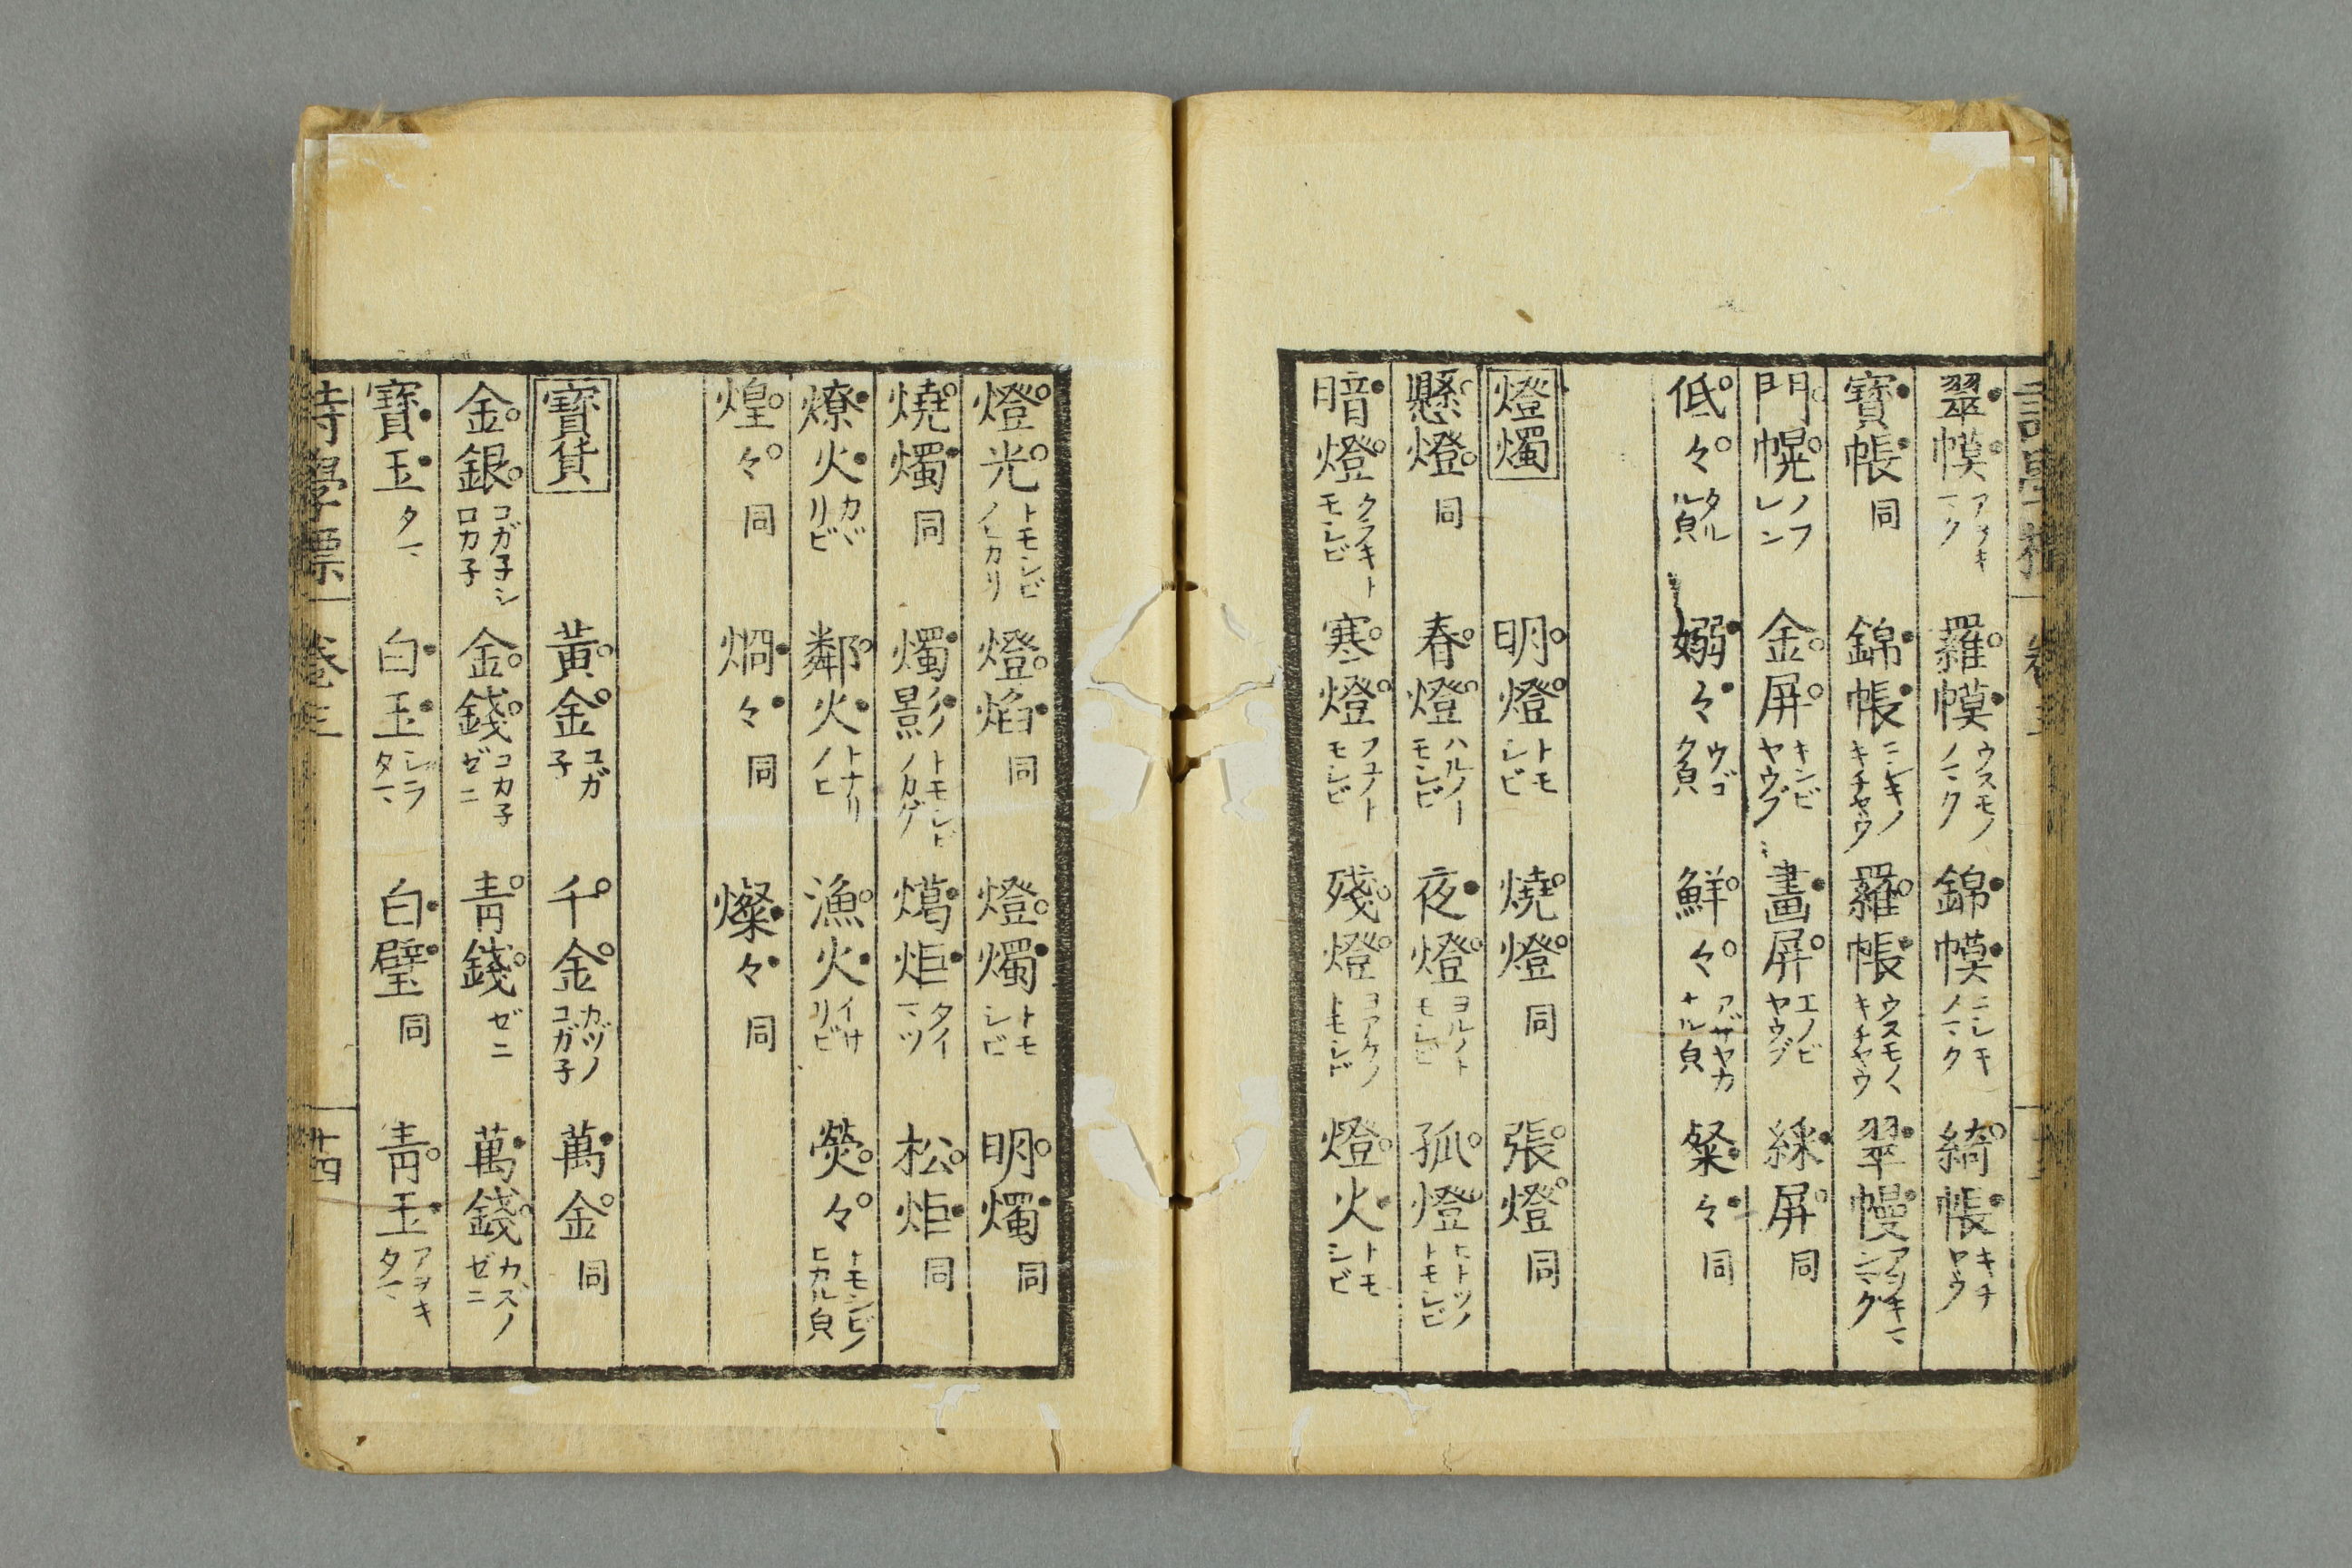 翠幙 アヲキマク 羅幙 ウスモノノマク 錦幙 ニシキノマク 綺帳 キチヤウ
寶帳 同 錦帳 ニシキノキチヤウ 羅帳 ウスモノヽキチヤウ 翠幔 アヲキマンマク
門幌 ノフレン 金屏 キンビヤウブ 畫屏 エノビヤウブ 綵屏 同
低々 タルル皃 嫋々 ウゴク皃 鮮々 アザヤカナル皃 粲々 同
燈燭 明燈 トモシビ 燒燈 同 張燈 同
懸燈 同 春燈 ハルノトモシビ 夜燈 ヨルノトモシビ 孤燈 ヒトツノトモシビ
暗燈 クラキトモシビ 寒燈 フユノトモシビ 殘燈 ヨアケノトモシビ 燈火 トモシビ
燈光 トモシビノヒカリ 燈焰 同 燈燭 トモシビ 明燭 同
燒燭 同 燭影 トモシビノカゲ 炬 タイマツ 松炬 同
燎火 カヾリビ 鄰火 トナリノヒ 漁火 イサリビ 熒々 トモシビノヒカル皃
煌々 同 烱々 同 燦々 同
寶貨 黃金 コガ子 千金 カヅノコガ子 萬金 同
金銀 コガ子シロカ子 金錢 コカ子ゼニ 靑錢 ゼニ 萬錢 カズノゼニ
寶玉 タマ 白玉 シラタマ 白璧 同 靑玉 アヲキタマ
詩學標 卷三 十四